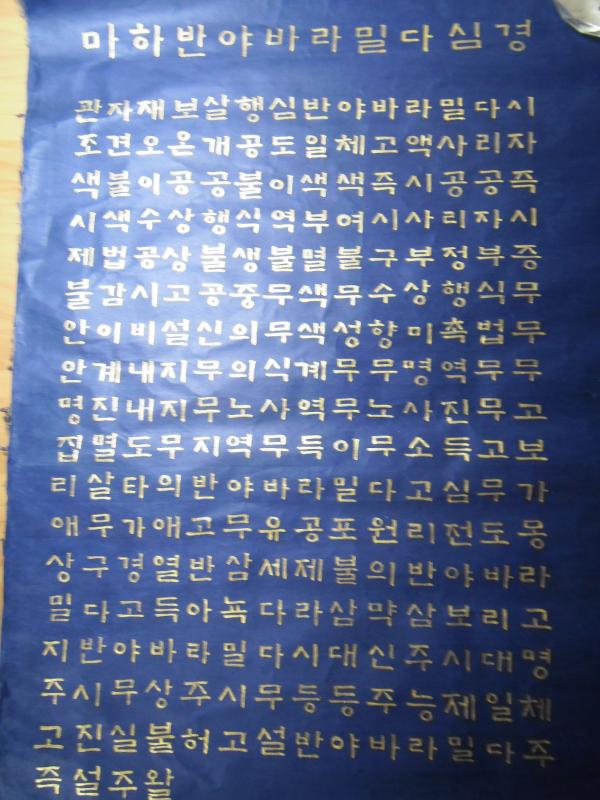 마하반야바라밀다심경
관자재보살행심반야바라밀다시
조견오온개공도일체고액사리자
색불이공공불이색색즉시공공즉
시색수상행식역부여시사리자시
제법공상불생불멸불구부정부증
불감시고공중무색무수상행식무
안이비설신의무색성향미촉법무
안계내지무의식계무무명역무무
명진내지무노사역무노사진무고
집멸도무지역무득이무소득고보
리살타의반야바라밀다고심무가
애무가애고무유공포원리전도몽
상구경열반삼세제불의반야바라
밀다고득아뇩다라삼먁삼보리고
지반야바라밀다시대신주시대명
주시무상주시무등등주능제일체
고진실불허고설반야바라밀다주
즉설주왈